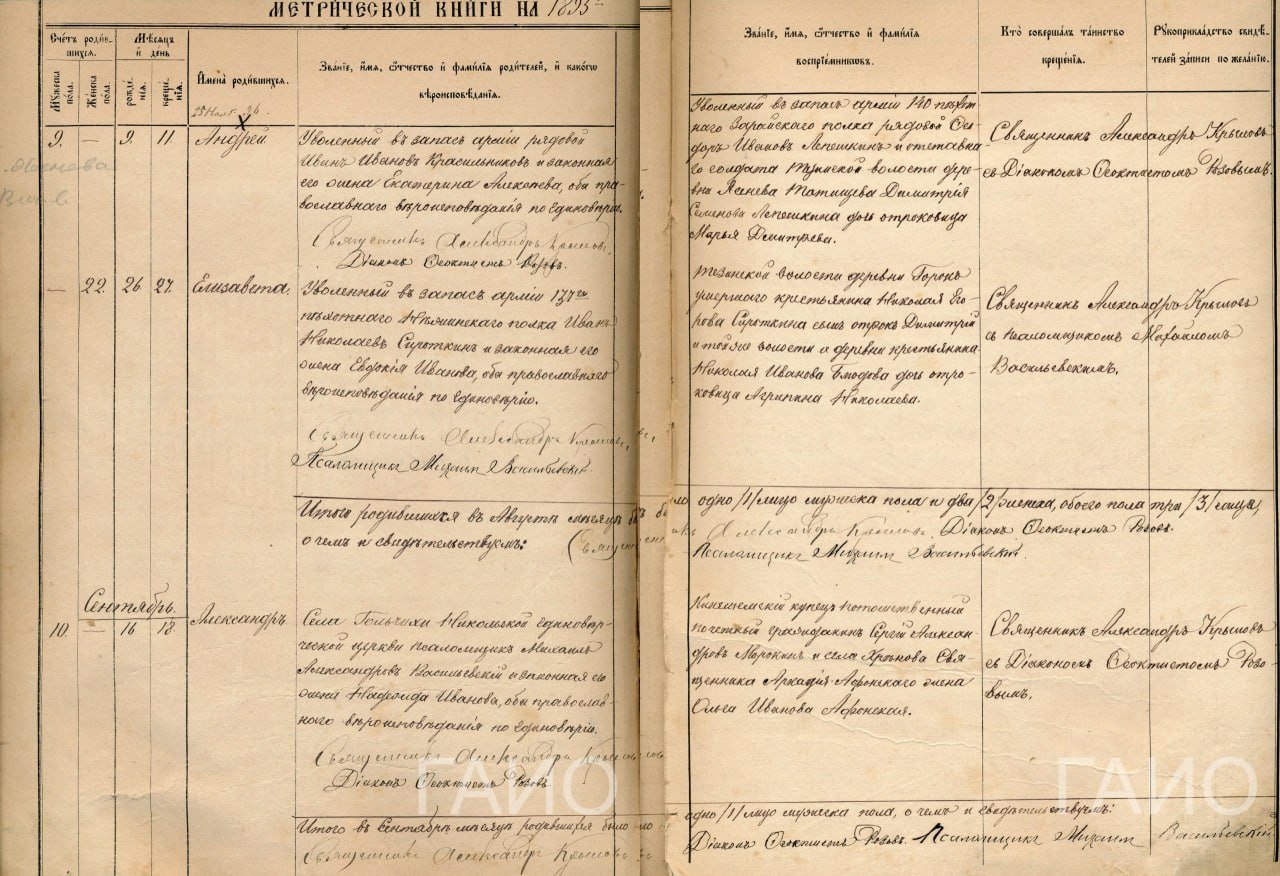 МЕТРИЧЕСКОЙ КНИГИ НА 1895
Счетъ родив-
шихся.
Мужеска пола.
Женска пола.
Мѣсяцъ
и день
рожде-
нія.
креще-
нія.
Имена родившихся.
Званіе, имя, отчество и фамилія родителей, и какого
вѣроисповѣданія.
9. — 9. 11. Андрей
Уволенный въ запасъ арміи рядовой
Иванъ Ивановъ Красильниковъ и законная
его жена Екатерина Алексѣева, оба пра-
вославнаго вѣроисповѣданія по единовѣрію.
Священникъ Александръ Крыловъ,
Діаконъ Ѳеоктистъ Розовъ.
— 22. 26 27. Елизавета.
Уволенный въ запасъ арміи 177го
пѣхотнаго полка Иванъ
Николаевъ Сироткинъ и законная его
жена Евдокія Иванова, оба православнаго
вѣроисповѣданія по единовѣрію.
Священникъ Александръ Крыловъ,
Псаломщикъ Михаилъ Васильевскій.
Итого родившихся въ Августѣ мѣсяцѣ
о чемъ и свидѣтельствуемъ:
Сентябрь.
10. — 16 18. Александръ.
Села Гольчихи Никольской единовѣр-
ческой церкви псаломщикъ Михаилъ
Александровъ Васильевскій и законная его
жена Иванова, оба православ-
наго вѣроисповѣданія по единовѣрію.
Священникъ Александръ Крыловъ
Діаконъ Ѳеоктистъ Розовъ.
Итого въ Сентябрѣ мѣсяцѣ родившихся было
Священникъ Александръ Крыловъ
Званіе, имя, отчество и фамилія
воспріемниковъ.
Кто совершалъ таинство
крещенія.
Рукоприкладство свидѣ-
телей записи по желанію.
Уволенный въ запасъ арміи 140 пѣхот-
наго Зарайскаго полка рядовой Ѳео-
доръ Ивановъ Лепешкинъ и отставна-
го солдата волости дер-
вни Яснева Димитрія
Семенова Лепешкина дочь отроковица
Марья Димитріева.
Священникъ Александръ Крыловъ
съ Діакономъ Ѳеоктистомъ Розовымъ.
волости деревни
умершаго крестьянина Николая Его-
рова Сироткина сынъ отрокъ Димитрій
и тойже волости и деревни крестьянина
Николая Иванова дочь отро-
ковица Агрипина Николаева.
Священникъ Александръ Крыловъ
съ псаломщикомъ Михаиломъ
Васильевскимъ.
одно /1/ лицо мужеска пола и два /2/ женска, обоего пола три /3/ лица,
Александръ Крыловъ. Діаконъ Ѳеоктистъ Розовъ.
Псаломщикъ Михаилъ Васильевскій.
Кинешемскій купецъ потомственный
почетный гражданинъ Сергѣй Алексан-
дровъ Морокинъ и села Хрѣнова Свя-
щенника Аркадія Афонскаго жена
Ольга Иванова Афонская.
Священникъ Александръ Крыловъ
съ Діакономъ Ѳеоктистомъ Розо-
вымъ.
одно /1/ лицо мужеска пола, о чемъ и свидѣтельствуемъ:
Діаконъ Ѳеоктистъ Розовъ. Псаломщикъ Михаилъ Васильевскій
ГАИО
ГАИО